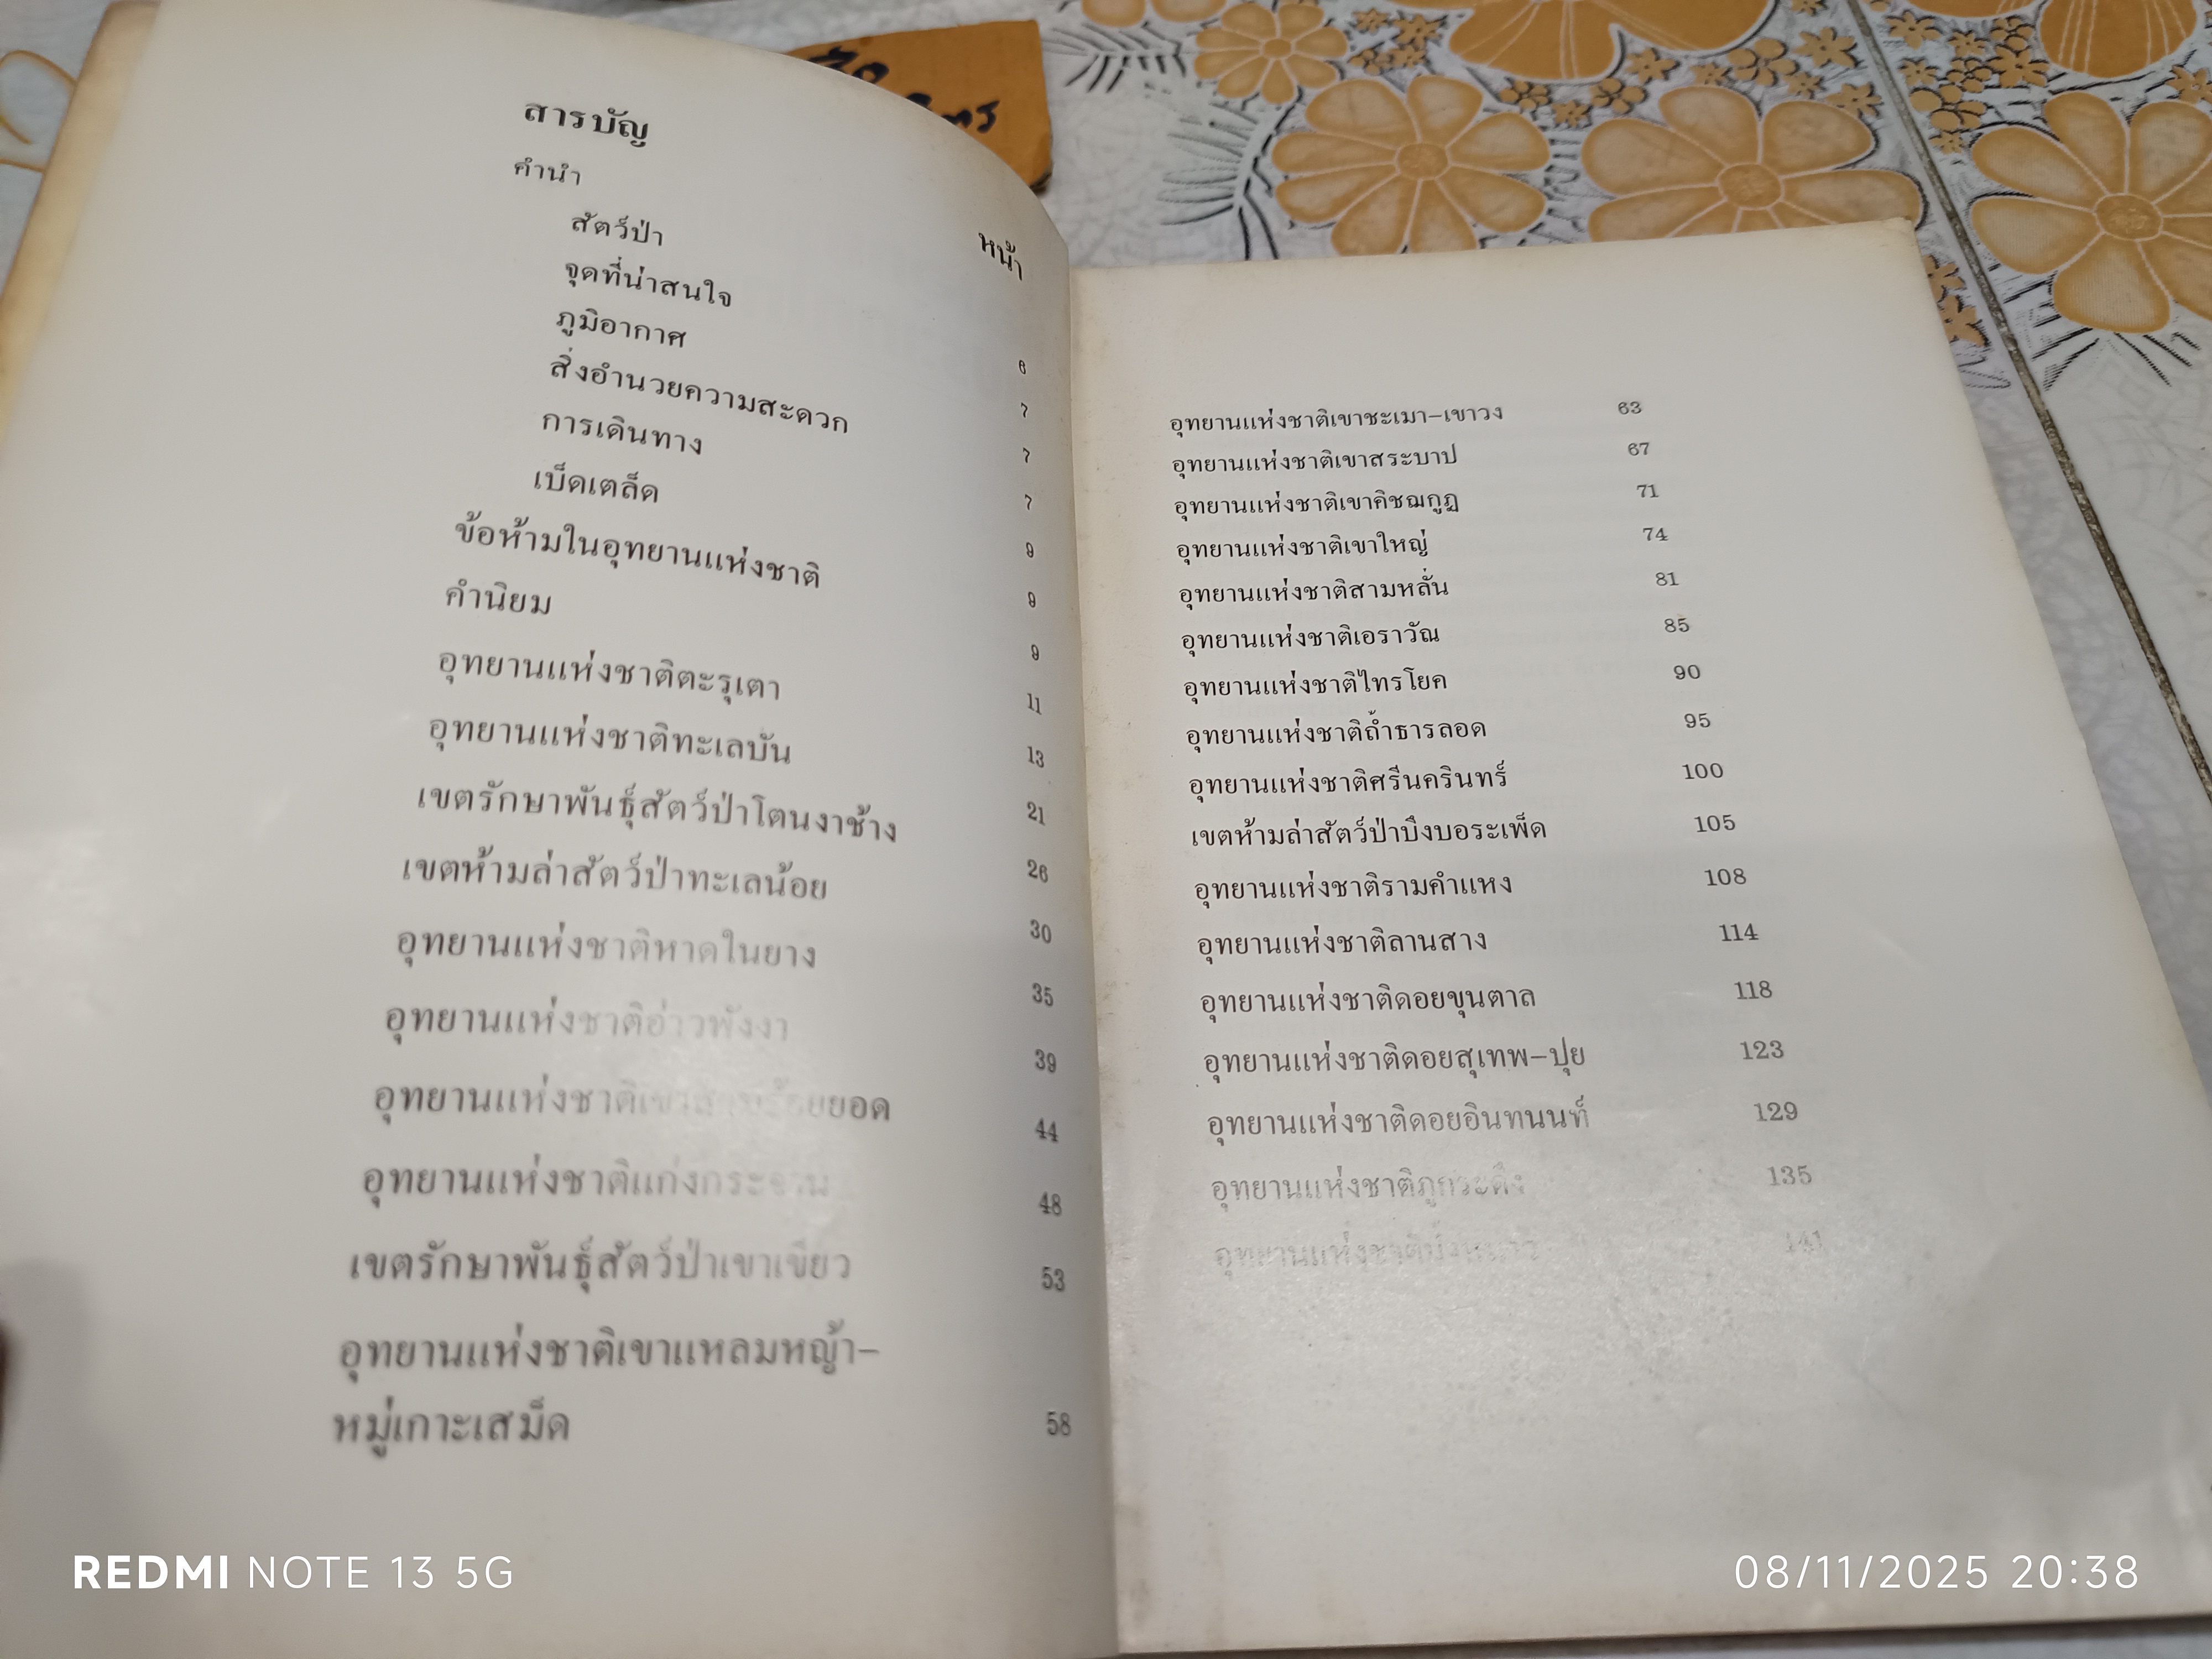 สารบัญ
หน้า
คำนำ 6
สัตว์ป่า 7
จุดที่น่าสนใจ 7
ภูมิอากาศ 7
สิ่งอำนวยความสะดวก 9
การเดินทาง 9
เบ็ดเตล็ด 9
ข้อห้ามในอุทยานแห่งชาติ 11
คำนิยม 13
อุทยานแห่งชาติตะรุเตา 21
อุทยานแห่งชาติทะเลบัน 26
เขตรักษาพันธุ์สัตว์ป่าโตนงาช้าง 30
เขตห้ามล่าสัตว์ป่าทะเลน้อย 35
อุทยานแห่งชาติหาดในยาง 39
อุทยานแห่งชาติอ่าวพังงา 44
อุทยานแห่งชาติเขาสามร้อยยอด 48
อุทยานแห่งชาติแก่งกระจาน 53
เขตรักษาพันธุ์สัตว์ป่าเขาเขียว
อุทยานแห่งชาติเขาแหลมหญ้า-
หมู่เกาะเสม็ด 58
อุทยานแห่งชาติเขาชะเมา-เขาวง 63
อุทยานแห่งชาติเขาสระบาป 67
อุทยานแห่งชาติเขาคิชฌกูฏ 71
อุทยานแห่งชาติเขาใหญ่ 74
อุทยานแห่งชาติสามหลั่น 81
อุทยานแห่งชาติเอราวัณ 85
อุทยานแห่งชาติไทรโยค 90
อุทยานแห่งชาติถ้ำธารลอด 95
อุทยานแห่งชาติศรีนครินทร์ 100
เขตห้ามล่าสัตว์ป่าบึงบอระเพ็ด 105
อุทยานแห่งชาติรามคำแหง 108
อุทยานแห่งชาติลานสาง 114
อุทยานแห่งชาติดอยขุนตาล 118
อุทยานแห่งชาติดอยสุเทพ-ปุย 123
อุทยานแห่งชาติดอยอินทนนท์ 129
อุทยานแห่งชาติภูกระดึง 135
อุทยานแห่งชาติ
REDMI NOTE 13 5G
08/11/2025 20:38